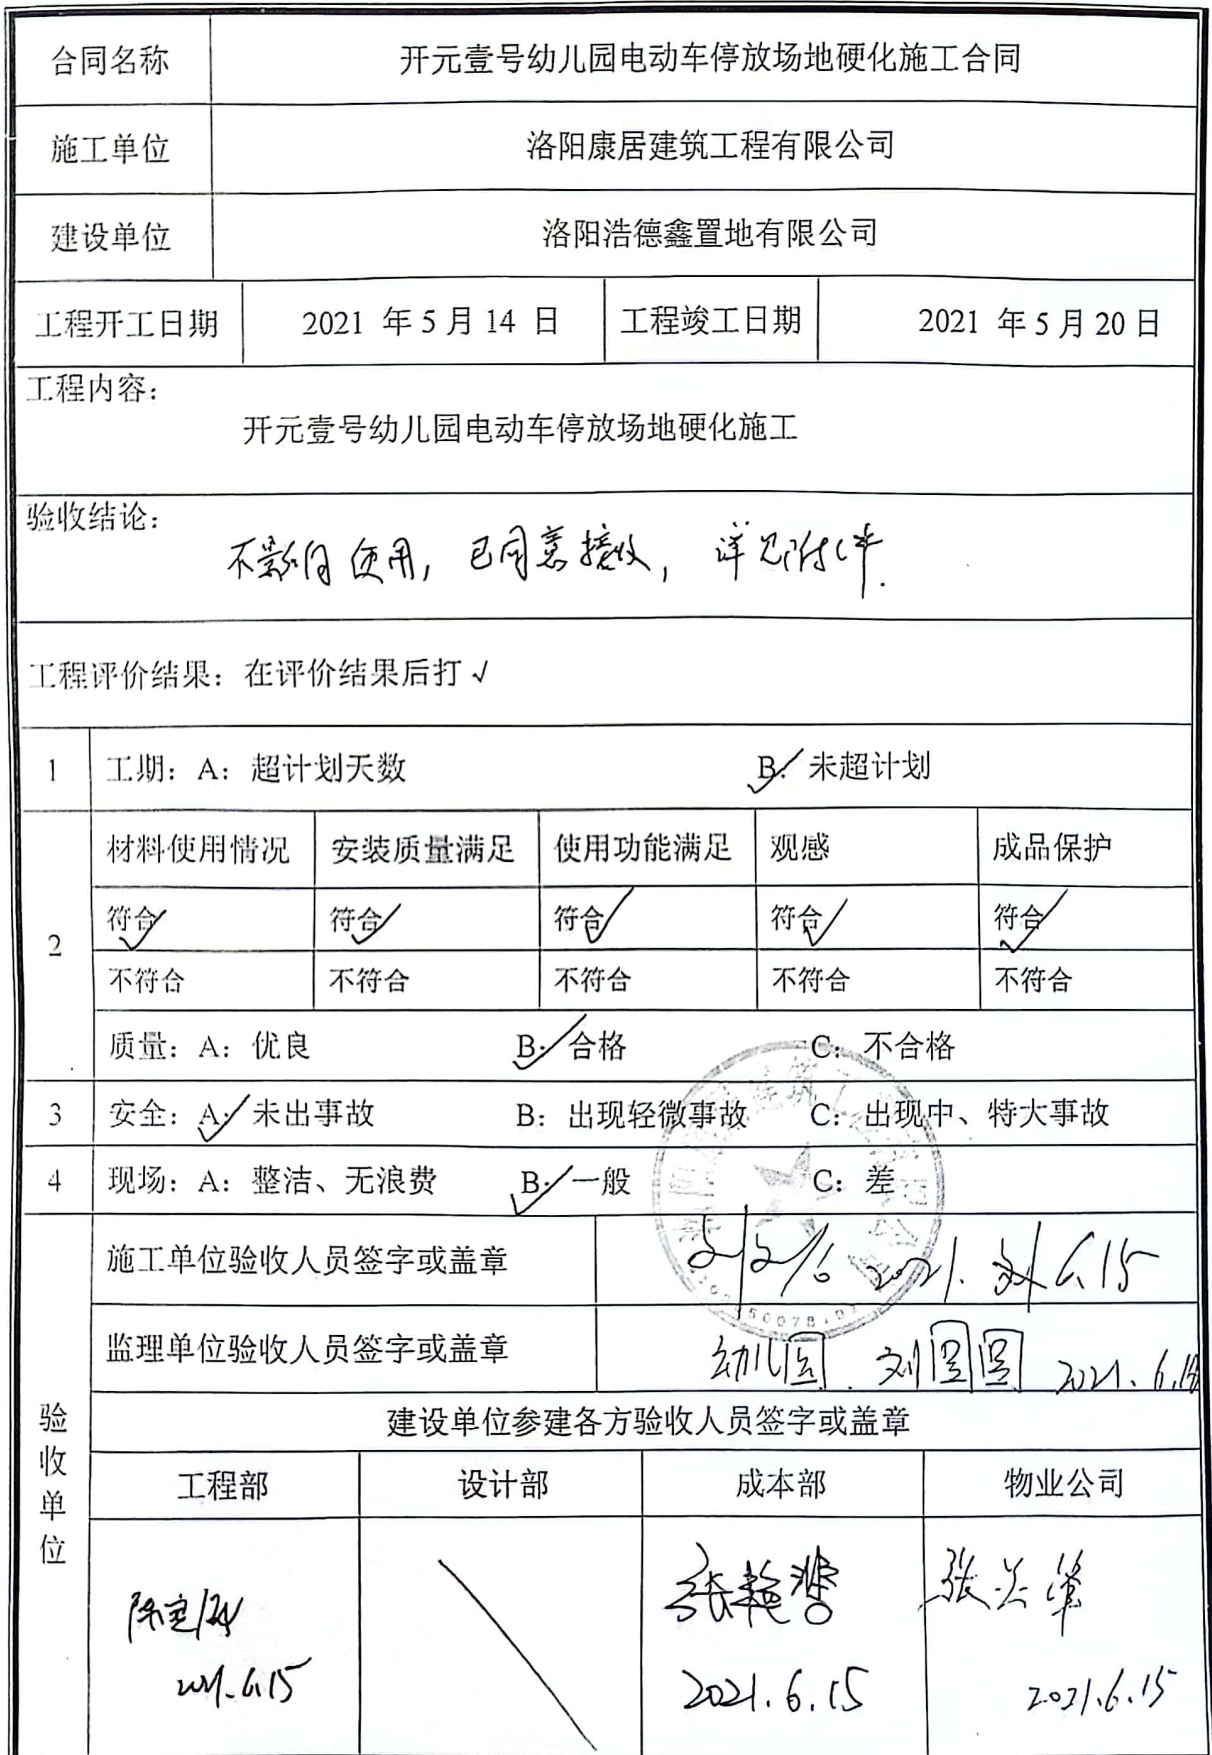 合同名称 开元壹号幼儿园电动车停放场地硬化施工合同
施工单位 洛阳康居建筑工程有限公司
建设单位 洛阳浩德鑫置地有限公司
工程开工日期 2021 年 5 月 14 日 工程竣工日期 2021 年 5 月 20 日
工程内容:
开元壹号幼儿园电动车停放场地硬化施工
验收结论:
不影响使用, 已同意接收, 详见附件.
工程评价结果: 在评价结果后打 √
1 工期: A: 超计划天数 B: √ 未超计划
材料使用情况 安装质量满足 使用功能满足 观感 成品保护
符合√ 符合√ 符合√ 符合√ 符合√
2
不符合 不符合 不符合 不符合 不符合
质量: A: 优良 B: √ 合格 C: 不合格
3 安全: A: √ 未出事故 B: 出现轻微事故 C: 出现中、特大事故
4 现场: A: 整洁、无浪费 B: √ 一般 C: 差
施工单位验收人员签字或盖章 2021. 6.15
监理单位验收人员签字或盖章 幼儿园. 刘圆圆 2021. 6.15
验收单位
建设单位参建各方验收人员签字或盖章
工程部 设计部 成本部 物业公司
2021.6.15 2021.6.15 2021.6.15